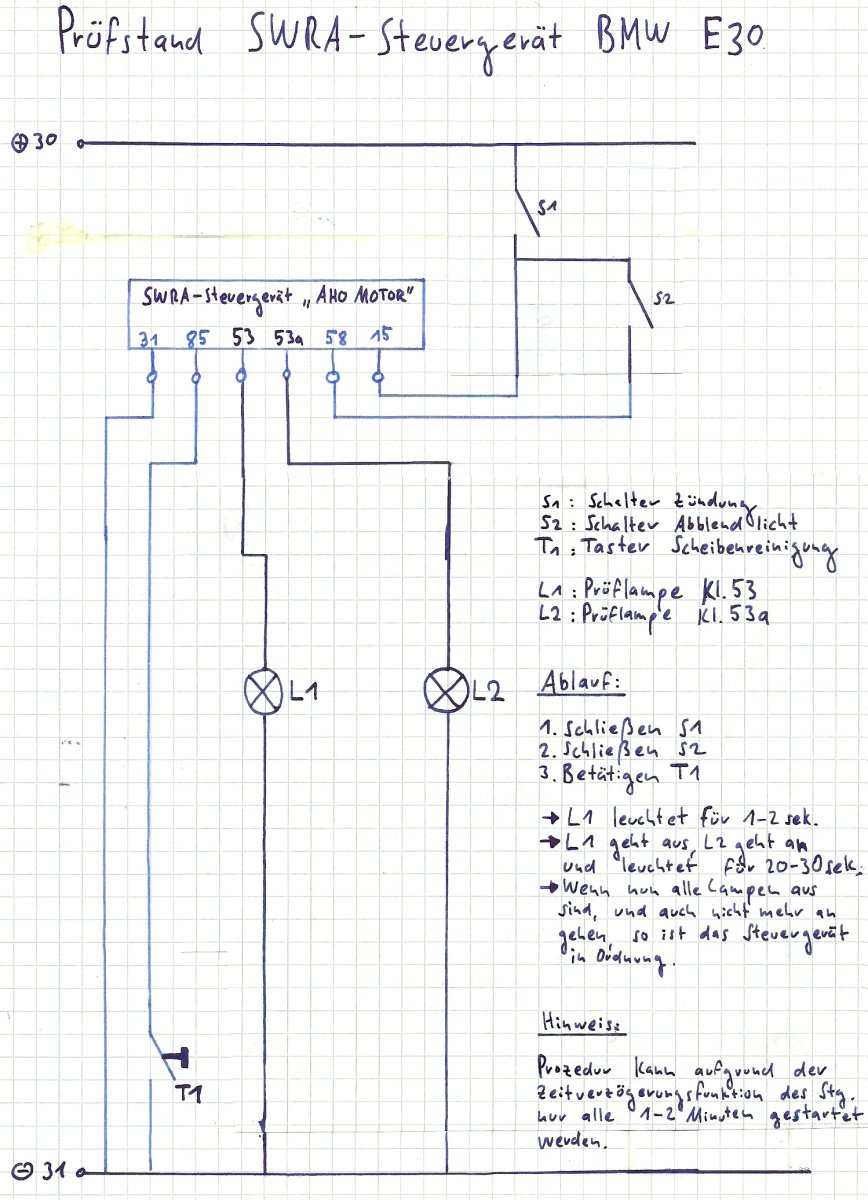 Prüfstand SWRA-Steuergerät BMW E30
⊕ 30
S1
S2
SWRA-Steuergerät „AHO MOTOR"
31 85 53 53a 58 15
S1: Schalter Zündung
S2: Schalter Abblendlicht
T1: Taster Scheibenreinigung
L1: Prüflampe Kl. 53
L2: Prüflampe Kl. 53a
L1
L2
Ablauf:
1. Schließen S1
2. Schließen S2
3. Betätigen T1
→ L1 leuchtet für 1-2 sek.
→ L1 geht aus, L2 geht an
und leuchtet für 20-30 sek.
→ Wenn nun alle Lampen aus
sind, und auch nicht mehr an
gehen, so ist das Steuergerät
in Ordnung.
Hinweis:
Prozedur kann aufgrund der
Zeitverzögerungsfunktion des Stg.
nur alle 1-2 Minuten gestartet
werden.
T1
⊖ 31